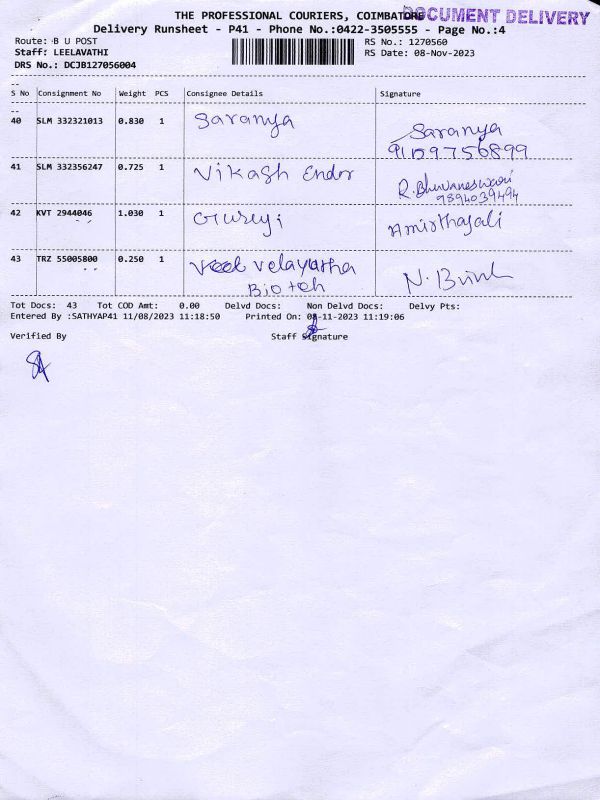 THE PROFESSIONAL COURIERS, COIMBATORE
DOCUMENT DELIVERY
Delivery Runsheet - P41 - Phone No.:0422-3505555 - Page No.:4
Route: B U POST
RS No.: 1270560
Staff: LEELAVATHI
RS Date: 08-Nov-2023
DRS No.: DCJB127056004
S No Consignment No Weight PCS Consignee Details Signature
40 SLM 332321013 0.830 1 Saranya Saranya
9109756899
41 SLM 332356247 0.725 1 Vikash Endor R.Bhuvaneswari
9894039494
42 KVT 2944046 1.030 1 Amirthajali
43 TRZ 55005800 0.250 1 velayutha
Bio teh
Tot Docs: 43 Tot COD Amt: 0.00 Delvd Docs: Non Delvd Docs: Delvy Pts:
Entered By :SATHYAP41 11/08/2023 11:18:50 Printed On: 08-11-2023 11:19:06
Verified By Staff Signature